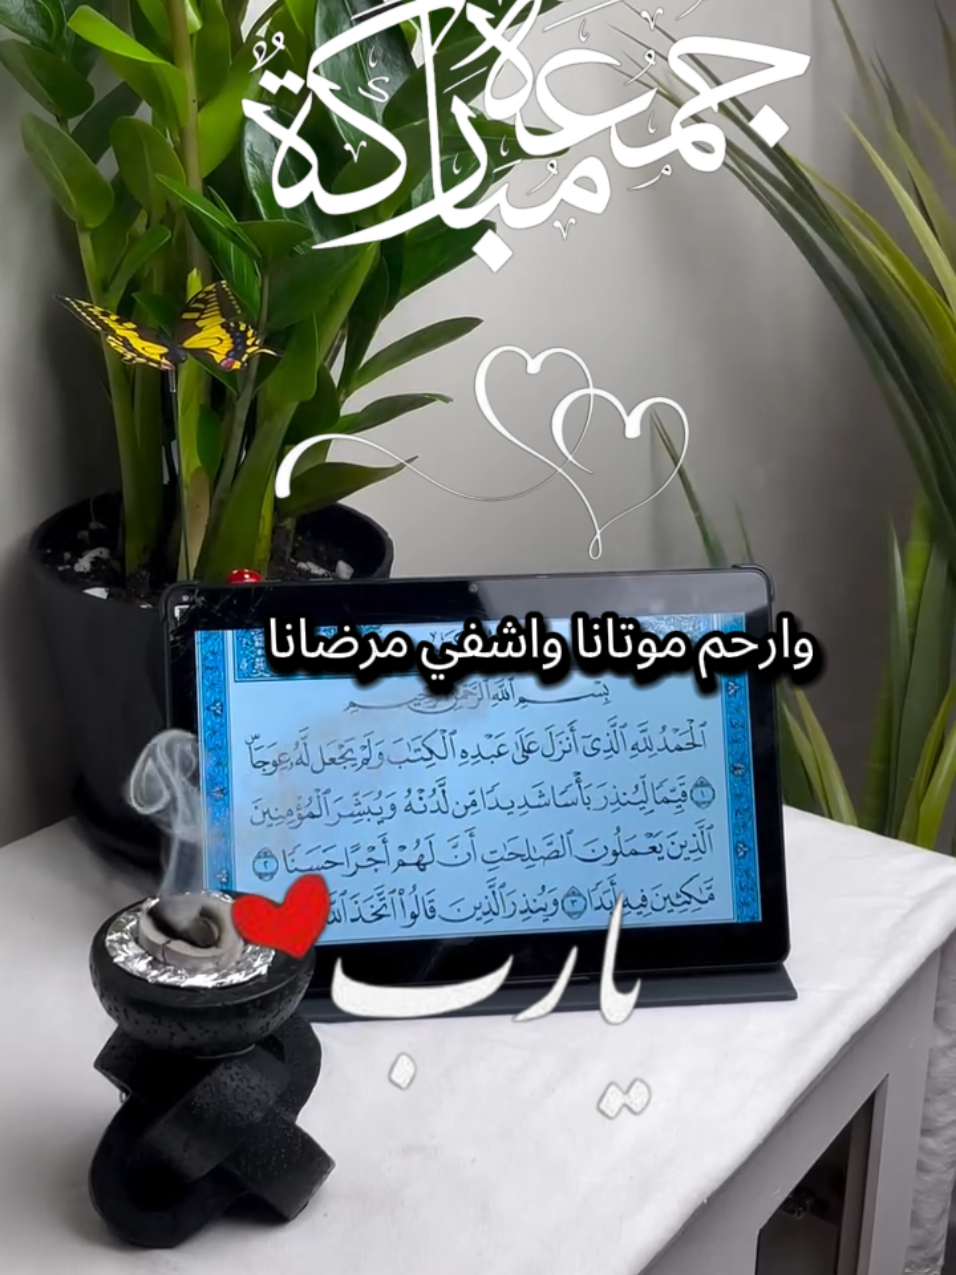 جمعة مباركة
وارحم موتانا واشفي مرضانا
بِسْمِ ٱللَّهِ ٱلرَّحْمَٰنِ ٱلرَّحِيمِ
ٱلْحَمْدُ لِلَّهِ ٱلَّذِىٓ أَنزَلَ عَلَىٰ عَبْدِهِ ٱلْكِتَٰبَ وَلَمْ يَجْعَل لَّهُۥ عِوَجَاۜ
١ قَيِّمًا لِّيُنذِرَ بَأْسًا شَدِيدًا مِّن لَّدُنْهُ وَيُبَشِّرَ ٱلْمُؤْمِنِينَ
ٱلَّذِينَ يَعْمَلُونَ ٱلصَّٰلِحَٰتِ أَنَّ لَهُمْ أَجْرًا حَسَنًا ٢
مَّٰكِثِينَ فِيهِ أَبَدًا ٣ وَيُنذِرَ ٱلَّذِينَ قَالُوا۟ ٱتَّخَذَ ٱللَّهُ
يارب